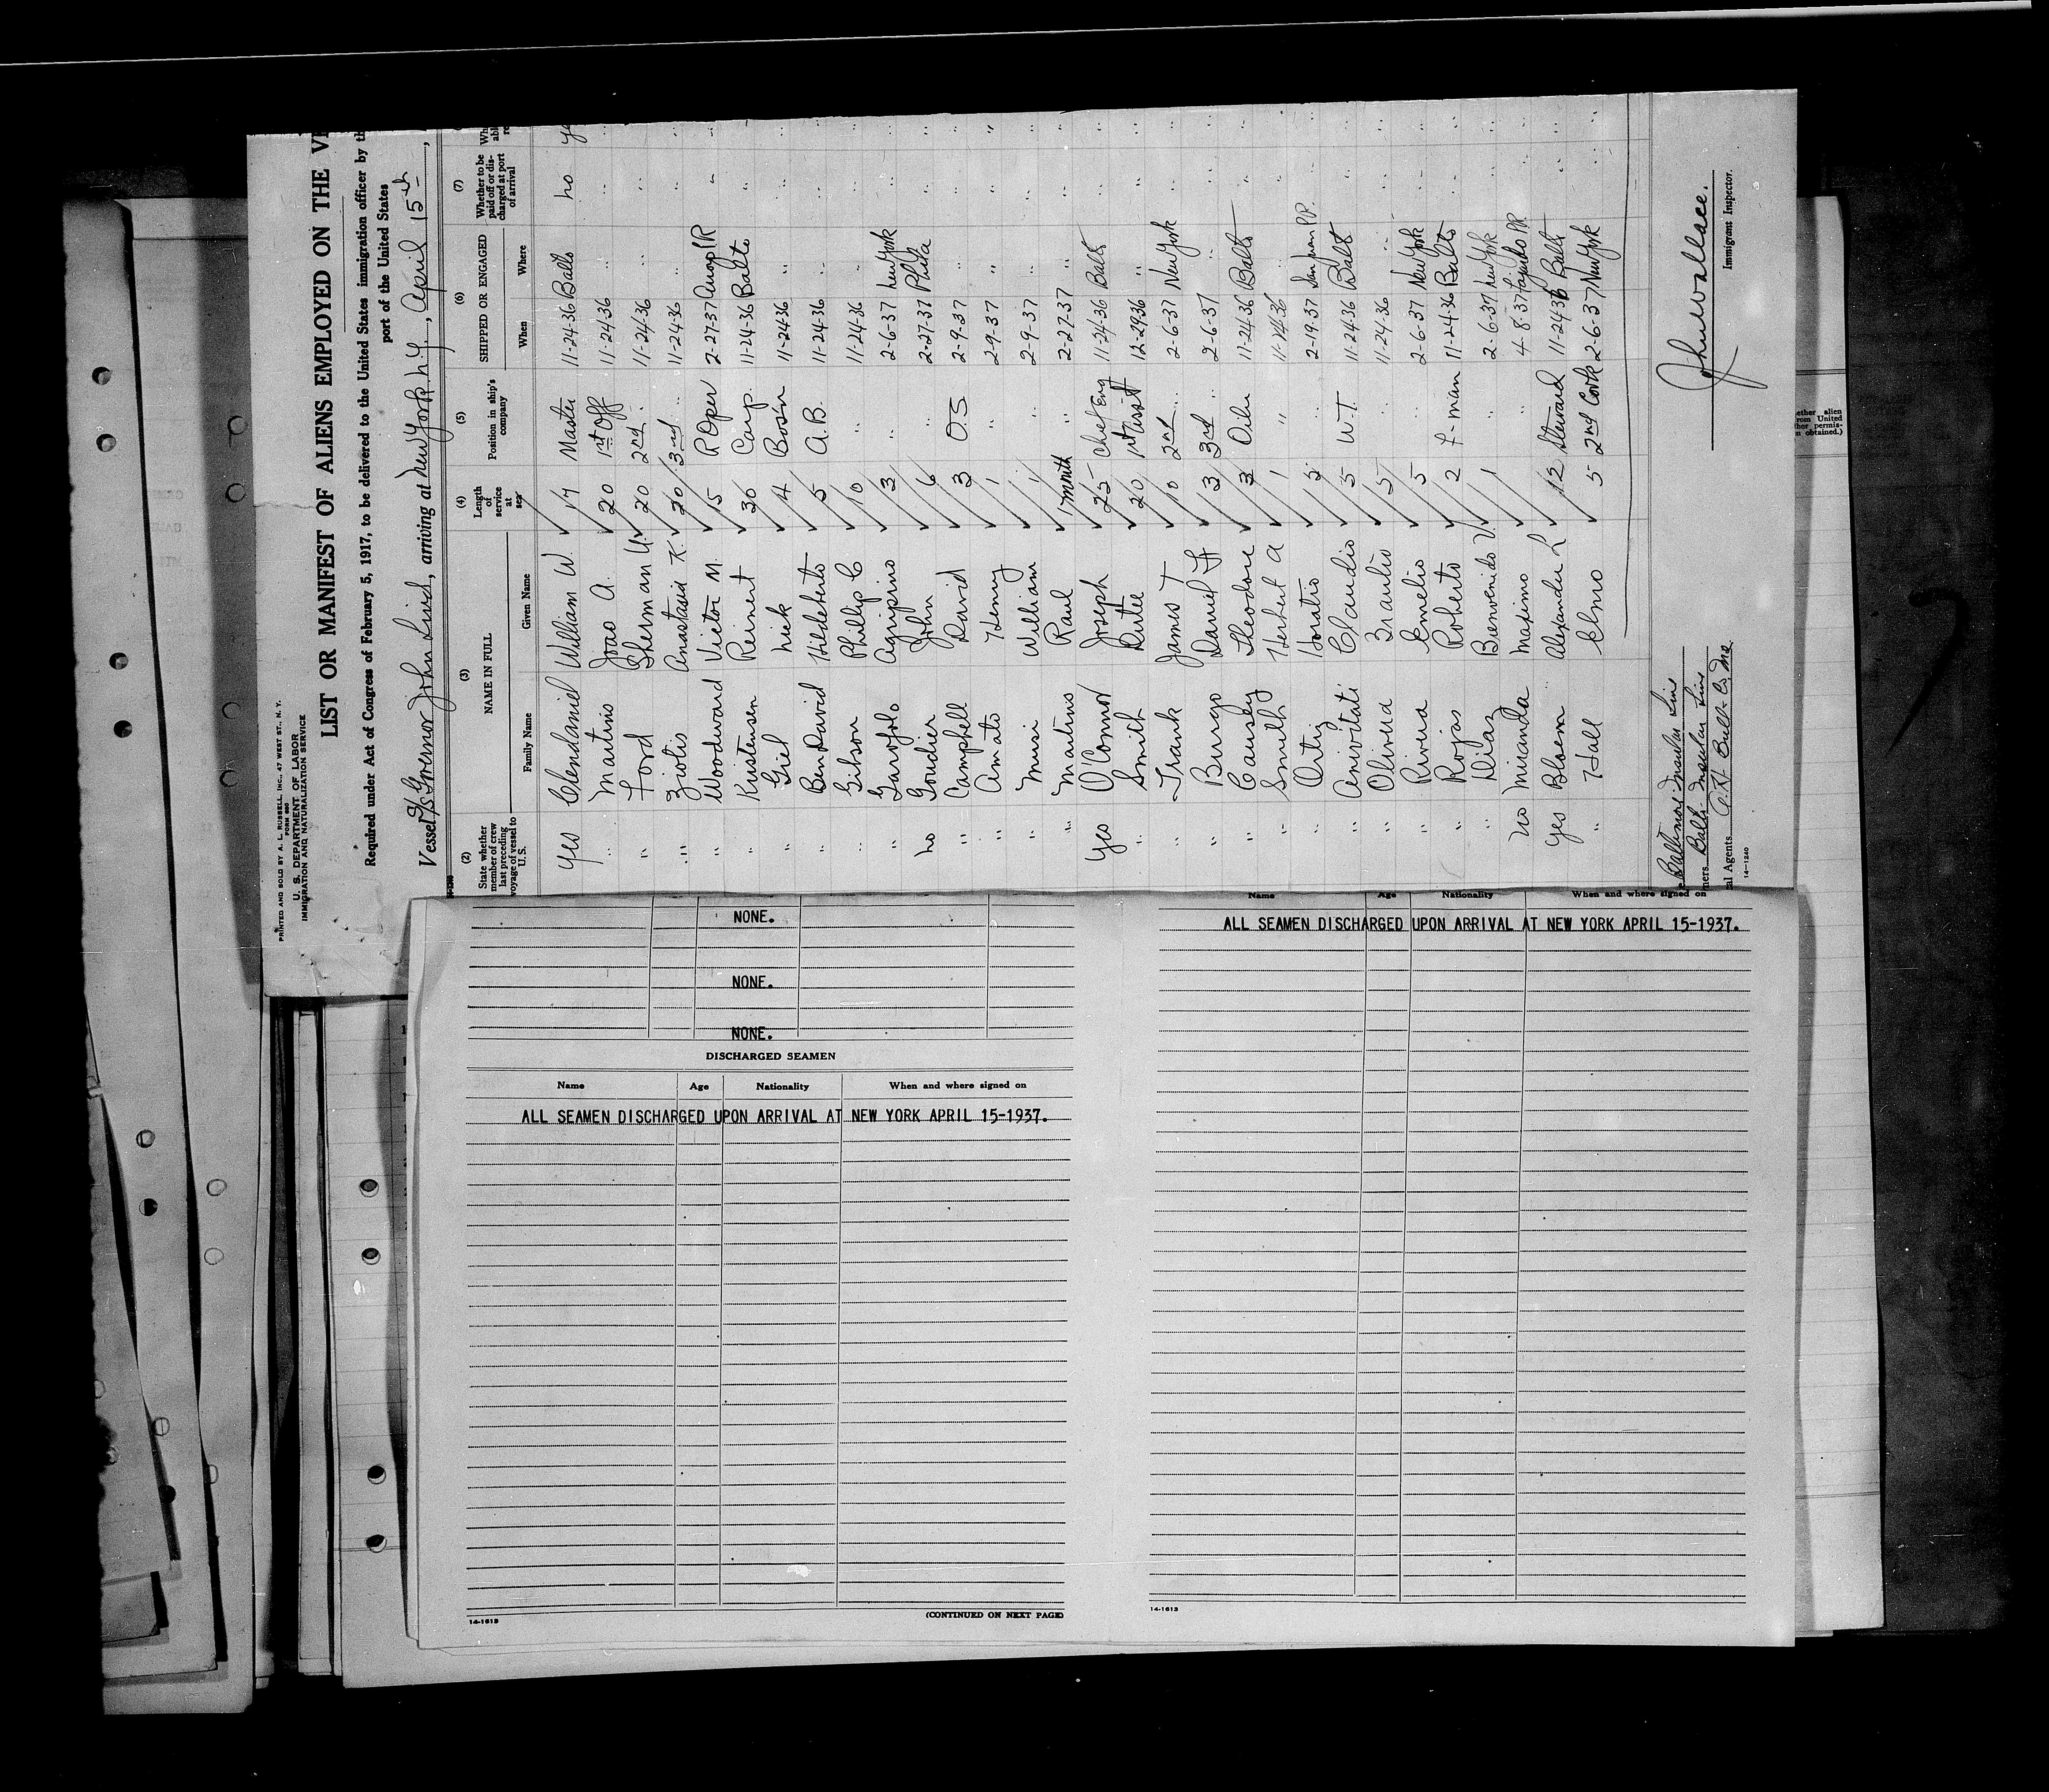 PRINTED AND SOLD BY A. L. RUSSELL, INC., 47 WEST ST., N. Y.
FORM 680
U. S. DEPARTMENT OF LABOR
IMMIGRATION AND NATURALIZATION SERVICE
LIST OR MANIFEST OF ALIENS EMPLOYED ON THE
Required under Act of Congress of February 5, 1917, to be delivered to the United States immigration officer by
port of the United States
Vessel S/S Governor John Lind, arriving at New York N.Y., April 15th
(2) (3) (4) (5) (6) (7)
State whether member of crew last preceding voyage of vessel to U.S. NAME IN FULL Length of service at sea Position in ship's company SHIPPED OR ENGAGED Whether to be paid off or discharged at port of arrival
Family Name Given Name When Where
Yes Clendaniel William W. 17 Master 11-24-36 Balto no
" Martins Joao A. 20 1st Off 11-24-36 " "
" Ford Sherman U. 20 2nd " 11-24-36 " "
" Ziotis Anastasia K. 20 3rd " 11-24-36 " "
" Woodward Victor M. 15 R Oper 2-27-37 PR "
" Kristensen Reinert 30 Carp. 11-24-36 Balto "
" Giel Nick 4 Bos'n 11-24-36 " "
" Ben David Hildeberto 5 A.B. 11-24-36 " "
" Gibson Phillip C 10 " 11-24-36 " "
" Garofolo Agripino 3 " 2-6-37 New York "
no Goudier John 6 " 2-27-37 Phila "
" Campbell David 3 O.S 2-9-37 " "
" Amato Henry 1 " 2-9-37 " "
" Musi William 1 " 2-9-37 " "
" Martins Raul 1 month " 2-27-37 " "
Yes O'Connor Joseph 25 Chief Eng 11-24-36 Balto "
" Smith Dutee 20 1st Asst 12-29-36 " "
" Frank James T 10 2nd " 2-6-37 New York "
" Burgo Daniel F 3 3rd " 2-6-37 " "
" Causey Theodore 3 Oiler 11-24-36 Balto "
" Smith Herbert A 1 " 11-24-36 " "
" Ortiz Horatio 5 " 2-19-37 San Juan P.R. "
" Claudio 5 W.T. 11-24-36 Balto "
" Olivera Braulio 5 " 11-24-36 " "
" Rivera Emelio 5 " 2-6-37 New York "
" Rojas Roberto 2 F-man 11-24-36 Balto "
" Diaz Bienvenido V. 1 " 2-6-37 New York "
no Miranda Maximo " 4-8-37 Fajardo P.R. "
Yes Bloem Alexander L 12 Steward 11-24-36 Balto "
" Hall Elmo 5 2nd Cook 2-6-37 New York "
Baltimore Insular Line
Balto Insular Line
al Agents A. H. Bull & Co Inc
14-1240
John Wallace.
Immigrant Inspector.
NONE.
NONE.
NONE.
DISCHARGED SEAMEN
Name Age Nationality When and where signed on
ALL SEAMEN DISCHARGED UPON ARRIVAL AT NEW YORK APRIL 15-1937.
14-1613
(CONTINUED ON NEXT PAGE)
Name Age Nationality When and where signed on
ALL SEAMEN DISCHARGED UPON ARRIVAL AT NEW YORK APRIL 15-1937.
14-1613